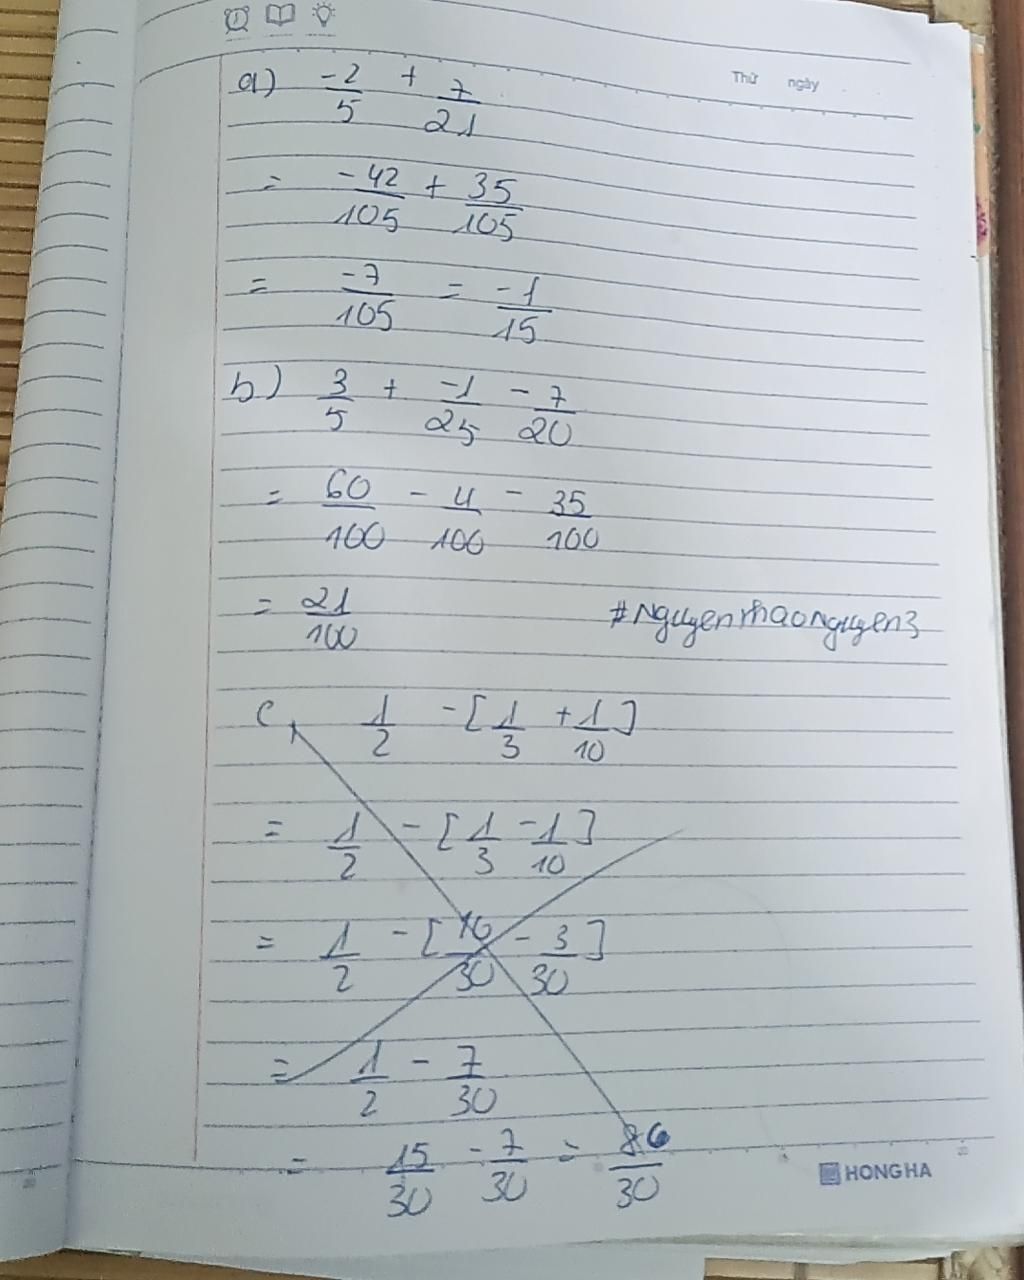 Thứ ngày
a) -2/5 + 7/21
= -42/105 + 35/105
= -7/105 = -1/15
b) 3/5 + -1/25 - 7/20
= 60/100 - 4/100 - 35/100
= 21/100
#NguyenThaoNguyen3
c, 1/2 - [1/3 + 1/10]
= 1/2 - [1/3 - 1/10]
= 1/2 - [10/30 - 3/30]
= 1/2 - 7/30
= 15/30 - 7/30 = 86/30
HONG HA